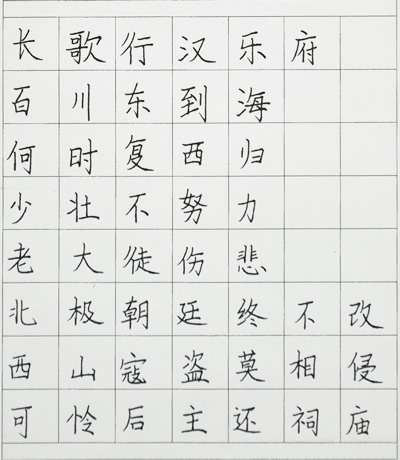 长歌行汉乐府
百川东到海
何时复西归
少壮不努力
老大徒伤悲
北极朝廷终不改
西山寇盗莫相侵
可怜后主还祠庙